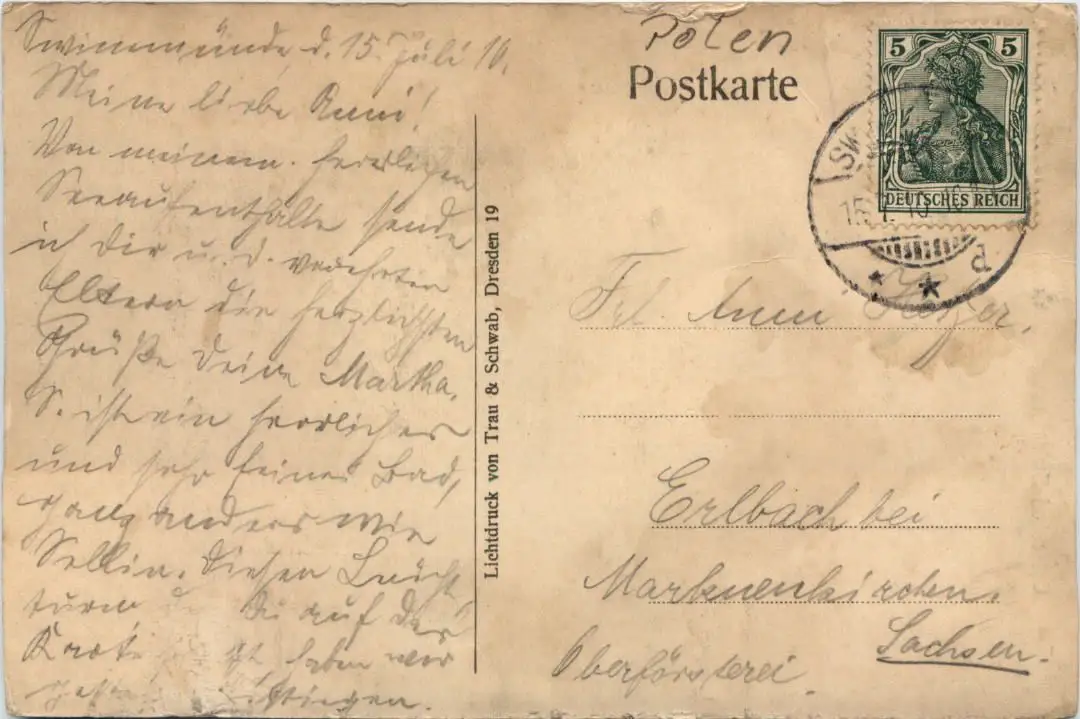 Swinemünde, d. 15. Juli 10.
Meine liebe Anni!
Von meinem herrlichen
Seeaufenthalte sende
ich Dir u. d. verehrten
Eltern die herzlichsten
Grüße Deine Martha.
S. ist ein herrliches
und sehr feines Bad,
ganz anders wie
Sellin. Diesen Leucht,
turm Du auf der
Karte haben wir
bestiegen.
Lichtdruck von Trau & Schwab, Dresden 19
Polen
Postkarte
5 5
DEUTSCHES REICH
SW
15. 7. 10
d
* *
Frl. Anni
Erlbach bei
Markneukirchen.
Sachsen.
Oberförsterei.